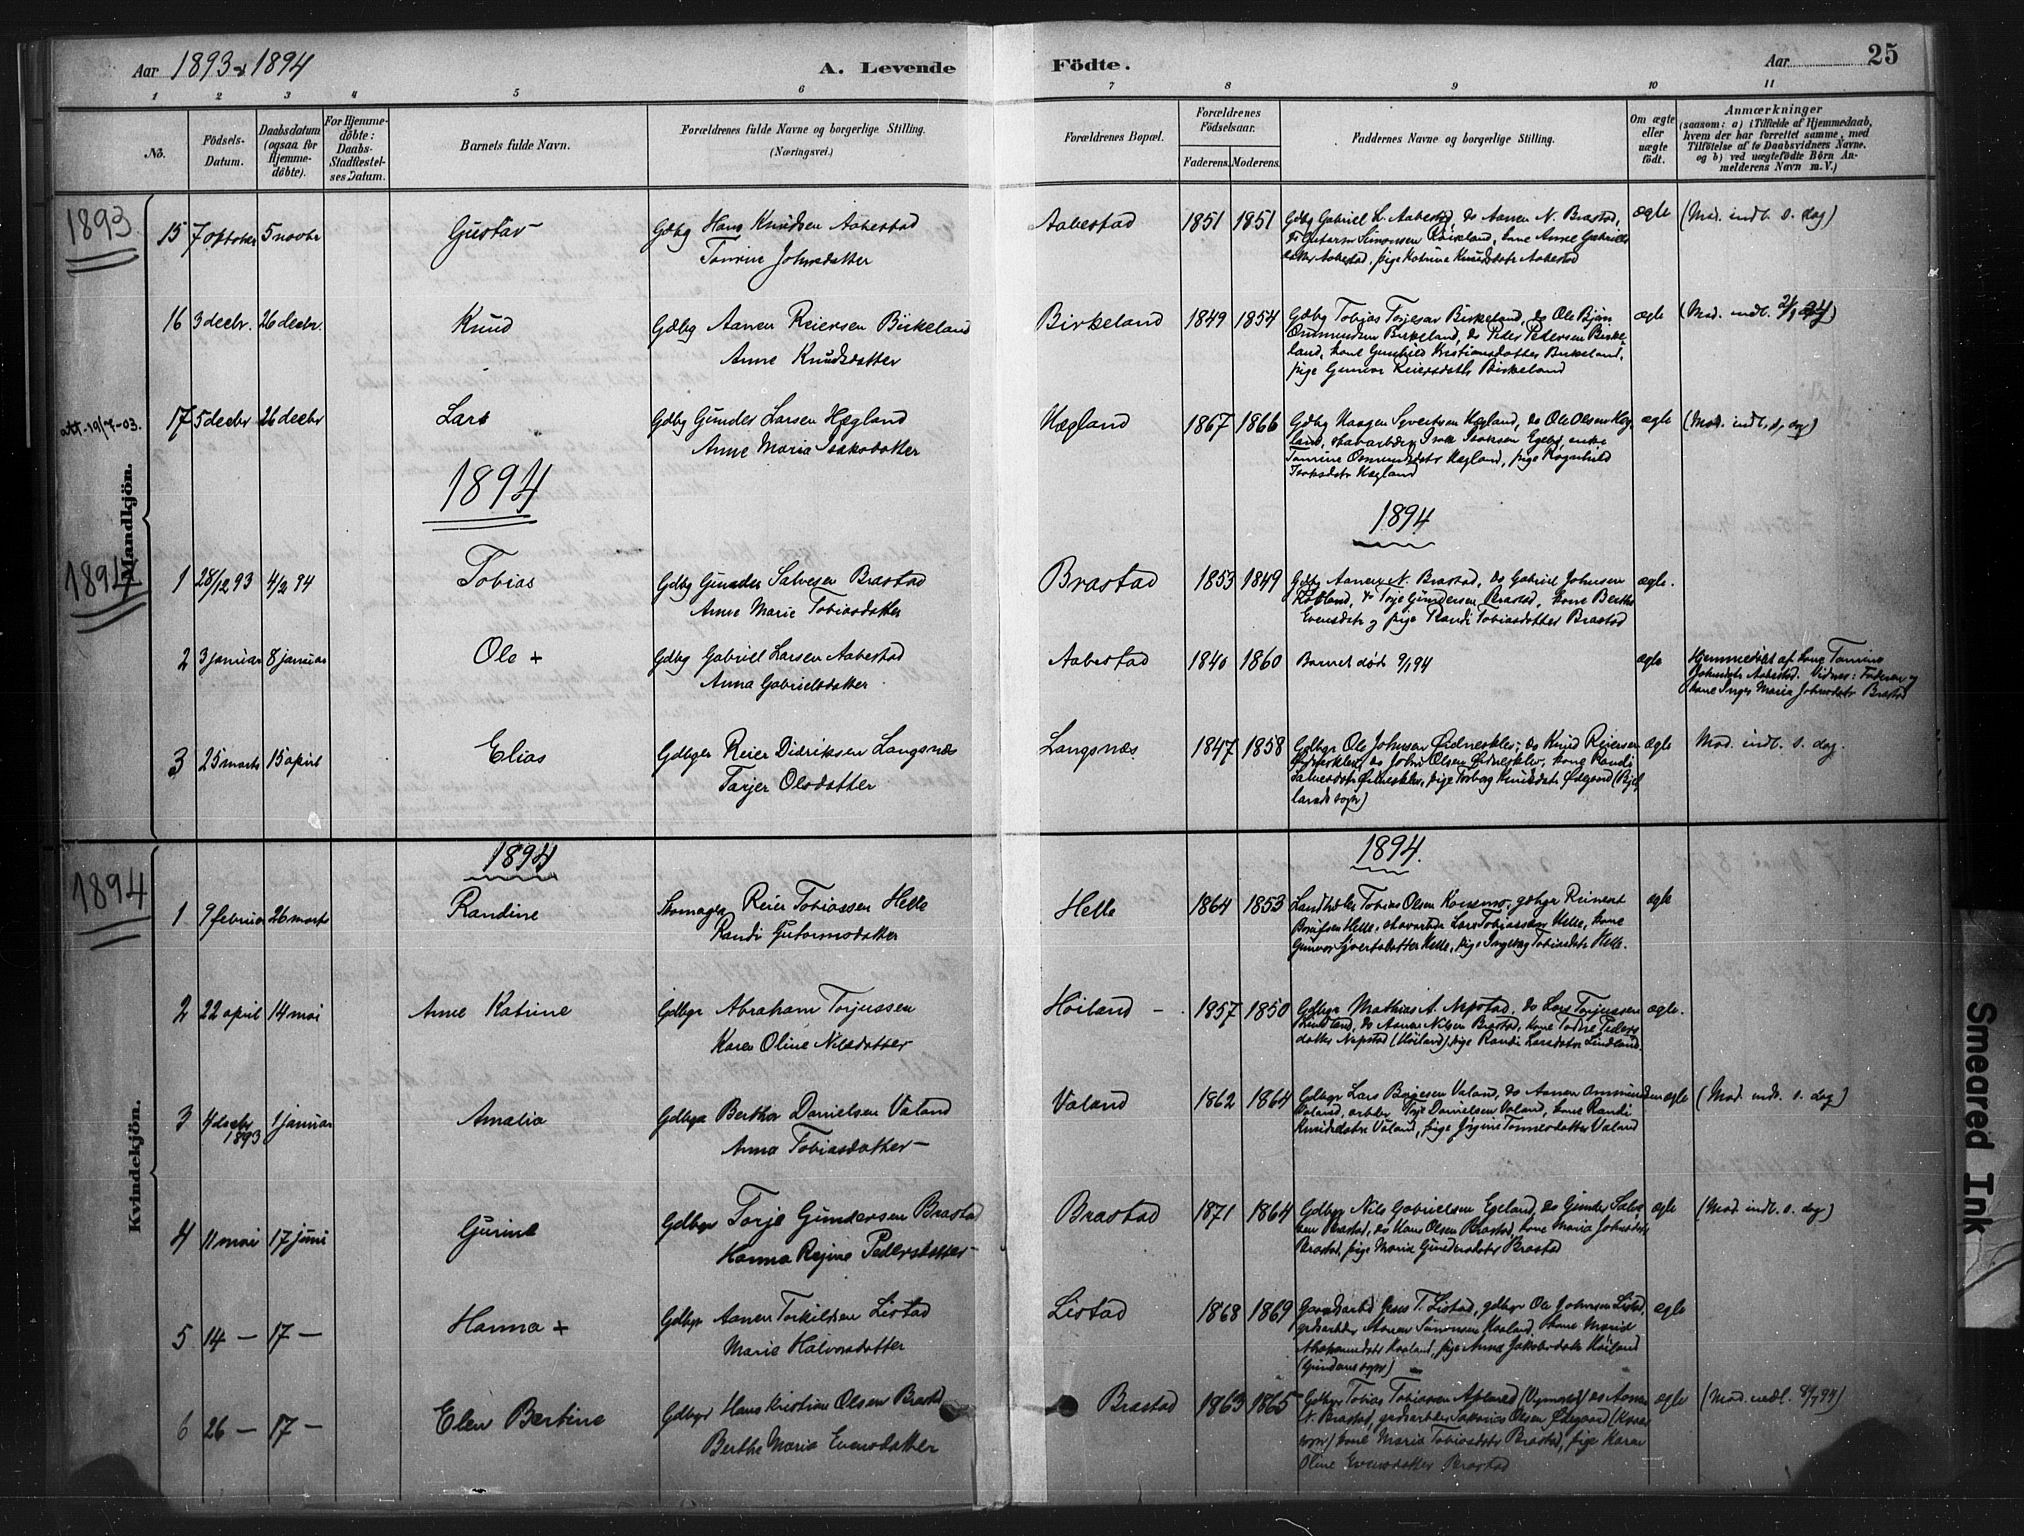 Aar 1893 & 1894
A. Levende Födte.
Aar 25
1 2 3 4 5 6 7 8 9 10 11
No.
Födsels-Datum.
Daabsdatum (ogsaa for Hjemme-döbte).
For Hjemme-döbte: Daabs-Stadfæstel-ses Datum.
Barnets fulde Navn.
Forældrenes fulde Navne og borgerlige Stilling.
(Næringsvei.)
Forældrenes Bopæl.
Forældrenes Födselsaar.
Faderens. Moderens.
Faddernes Navne og borgerlige Stilling.
Om ægte eller uægte födt.
Anmærkninger
(saasom: a) i Tilfælde af Hjemmedaab,
hvem der har forrettet samme, med
Tilföielse af to Daabsvidners Navne.
og b) ved uægtefödte Börn An-
melderens Navn m.V.)
Mandkjön.
1893
15 7 oktober 5 novbr Gustav Gdbg Hans Knudsen Aabestad
Tomine Johnsdatter
Aabestad 1851 1851 Gdbg Gabriel L. Aabestad, do Aanen N. Brastad,
do Gutorm Simonsen Röikeland, kone Anne Gabriels
datter Aabestad, pige Katrine Knudsdatr Aabestad
ægte (Mod. indl. s. dag)
16 3 decbr. 26 decbr. Knud Gdbg Aanen Reiersen Birkeland
Anne Knudsdatter
Birkeland 1849 1854 Gdbg Tobias Terjesen Birkeland, do Ole Bjørn
Osmundsen Birkeland, do Peder Pedersen Birke-
land, kone Gunhild Kristiansdatter Birkeland,
pige Gunvor Reiersdatr Birkeland
ægte (Mod. indl. 2/1 94)
att. 19/7-03.
17 5 decbr 26 decbr Lars Gdbg Gunder Larsen Hægland
Anne Maria Isaksdatter
Hægland 1867 1866 Gdbg Haagen Syvertsen Hægland, do Ole Olsen Hæg-
land, Isak Isaksen enke
Tomine Osmundsdatr Hægland, pige Ragnhild
Isaksdatr Hægland
ægte (Mod. indl. s. dag)
1894
1894
1894
1 28/12 93 4/2 94 Tobias Gdbg Gunder Salvesen Brastad
Anne Marie Tobiasdatter
Brastad 1853 1849 Gdbg Aanen N. Brastad, do Gabriel Johnsen
do Terje Gundersen Brastad, kone Berthe
Evensdatr og pige Randi Tobiasdatter Brastad
ægte.
2 3 januar 8 januar Ole + Gdbg Gabriel Larsen Aabestad
Anna Gabrielsdatter
Aabestad 1840 1860 Barnet död 9/1 94 ægte Hjemmedöbt af kone Tomine
Johnsdatr Aabestad. Vidner: Faderen og
kone Inger Maria Johnsdatr Brastad
3 25 marts 15 april Elias Gdbgr Reier Didriksen Langsnæs
Tarjer Olsdatter
Langsnæs 1847 1858 Gdbgr Ole Johnsen Ødnesklev, do Knud Reiersen
Ødnesklev, do John Olsen Ødnesklev, kone Randi
Salvesdatr Ødnesklev, pige Torborg Knudsdatr Ødegaard (Bjel-
lands sogn)
ægte Mod. indl. s. dag.
Kvindekjön.
1894
1894
1894.
1 9 februar 26 marts Randine Skomager Reier Tobiassen Helle
Randi Gutormsdatter
Helle 1864 1853 Landhdlr Tobias Olsen Konsmo, gdbgr Reinert
Helle, Lars Tobiassen Helle, kone
Gunvor Syvertsdatter Helle, pige Ingeborg Tobiasdatr Helle.
ægte
2 22 april 14 mai Anne Katrine Gdbgr Abraham Torjussen
Karen Oline Nilsdatter
Höiland - 1857 1850 Gdbgr Mathias A. Nepstad, do Lars Torjussen
Lindland, do Aanen Nilsen Brastad, kone Peders-
datter Nepstad (Höiland), pige Randi Larsdatr Lindland
ægte.
3 4 decbr 1893 1 januar Amalia Gdbgr Berthor Danielsen Valand
Anna Tobiasdatter -
Valand 1862 1864 Gdbgr Lars Börgesen Valand, do Aanen Ommundsen
Valand, arbdr Terje Danielsen Valand, kone Randi
Knudsdatr Valand, pige Jörgine Tönnesdatter Valand
ægte (Mod. indl. s. dag)
4 11 mai 17 juni Gurine Gdbgr Torje Gundersen Brastad
Hanna Regine Pedersdatter -
Brastad 1871 1864 Gdbgr Nils Gabrielsen Egeland, do Gunder Salve-
sen Brastad, do Hans Olsen Brastad, kone Maria Johnsdatr
Brastad, pige Maria Gundersdatr Brastad
ægte (Mod. indl. s. dag)
5 14 - 17 - Hanna + Gdbgr Aanen Torkildsen Listad
Marie Halvorsdatter
Listad 1868 1869 Gaardsarbd Jens T. Listad, gdbgr Ole Johnsen Listad,
grdsarbdr Aanen Simonsen Haaland, kone Marie
Abrahamsdatr Haaland, pige Anna Jakobsdatr Höiland
ægte
6 26 - 17 - Elen Bertine Gdbgr Hans Kristian Olsen Brastad
Berthe Maria Evensdatter
Brastad 1863 1865 Gdbgr Tobias Tobiassen do Aanen
N. Brastad, grdsarbdr Olsen Ødegaard
kone Maria Tobiasdatr Brastad, pige Karen
Oline Evensdatter Brastad
ægte (Mod. indl. 8/7 94)
Smeared Ink